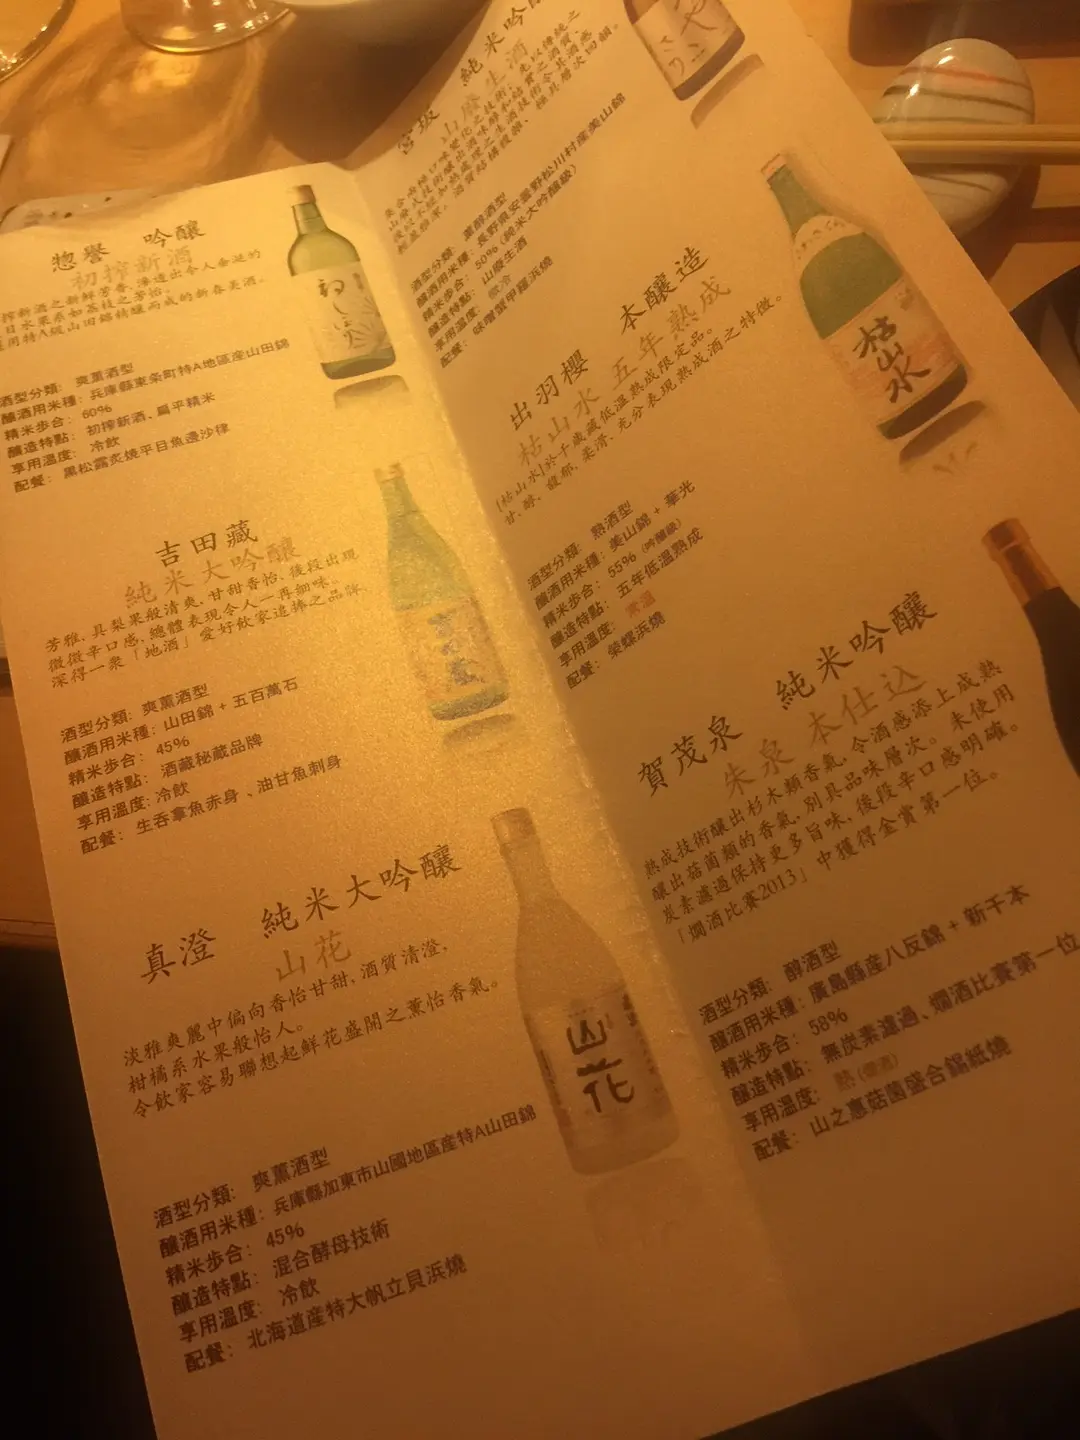 惣譽 吟釀
初搾新酒
搾新酒之新鮮芳香,滲透出令人垂涎的
日水果系如荔枝之芳怡。
用特A級山田錦精釀而成的新春美酒。
酒型分類: 爽薰酒型
釀酒用米種: 兵庫縣東条町特A地區產山田錦
精米步合: 60%
釀造特點: 初搾新酒、扁平精米
享用溫度: 冷飲
配餐: 黑松露炙燒平目魚邊沙律
初しぼり
吉田藏
純米大吟釀
芳雅、具梨果般清爽,甘甜香怡、後段出現
微微辛口感,總體表現令人一再細味。
深得一眾「地酒」愛好飲家追捧之品牌
酒型分類: 爽薰酒型
釀酒用米種: 山田錦 + 五百萬石
精米步合: 45%
釀造特點: 酒藏秘蔵品牌
享用溫度: 冷飲
配餐: 生吞拿魚赤身、油甘魚刺身
吉田蔵
真澄 純米大吟釀
山花
淡雅爽麗中偏向香怡甘甜,酒質清澄,
柑橘系水果般怡人。
令飲家容易聯想起鮮花盛開之薰怡香氣。
酒型分類: 爽薰酒型
釀酒用米種: 兵庫縣加東市山國地區產特A山田錦
精米步合: 45%
釀造特點: 混合酵母技術
享用溫度: 冷飲
配餐: 北海道產特大帆立貝浜燒
山花
宮坂 純米吟釀
山廢生酒
酒型分類: 薰醇酒型
釀酒用米種: 長野縣安曇野松川村產美山錦
精米步合: 50% (純米大吟釀級)
釀造特點: 山廢生酒
享用溫度: 微冷
配餐: 味噌蟹甲羅浜燒
出羽櫻 本釀造
枯山水 五年熟成
[枯山水]於千歲藏低溫熟成限定品。
甘、醇、馥郁、柔滑、充分表現熟成酒之特徵。
酒型分類: 熟酒型
釀酒用米種: 美山錦 + 華光
精米步合: 55% (吟釀級)
釀造特點: 五年低溫熟成
享用溫度: 常溫
配餐: 榮螺浜燒
枯山水
賀茂泉 純米吟釀
朱泉 本仕込
熟成技術釀出杉木類香氣,令酒感添上成熟
釀出菇菌類的香氣,別具品味層次。未使用
炭素濾過保持更多旨味,後段辛口感明確。
「燗酒比賽2013」中獲得金賞第一位。
酒型分類: 醇酒型
釀酒用米種: 廣島縣產八反錦 + 新千本
精米步合: 58%
釀造特點: 無炭素濾過、燗酒比賽第一位
享用溫度: 熱 (燗酒)
配餐: 山之惠菇菌盛合錫紙燒